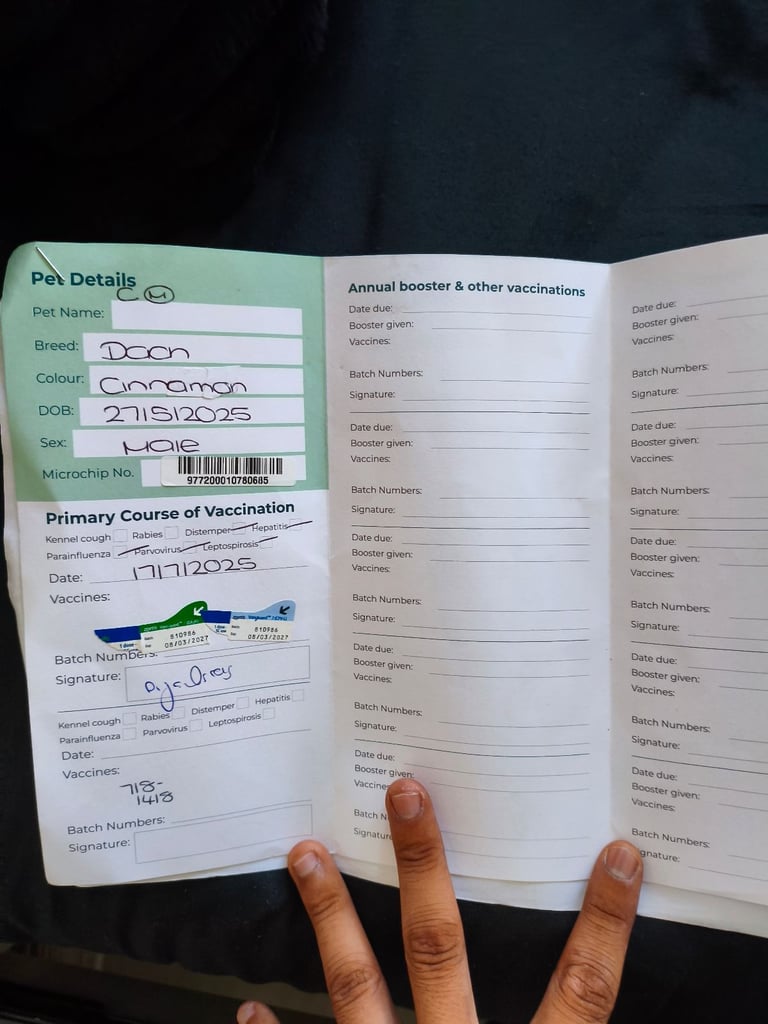 Pet Details
C M
Pet Name:
Breed: Dach
Colour: Cinnamon
DOB: 27/5/2025
Sex: Male
Microchip No.
977200010780685
Primary Course of Vaccination
Kennel cough Rabies Distemper Hepatitis
Parainfluenza Parvovirus Leptospirosis
Date: 17/7/2025
Vaccines:
810986
08/03/2027
810986
08/03/2027
Batch Numbers:
Signature:
Kennel cough Rabies Distemper Hepatitis
Parainfluenza Parvovirus Leptospirosis
Date:
Vaccines:
7/8-
14/8
Batch Numbers:
Signature:
Annual booster & other vaccinations
Date due:
Booster given:
Vaccines:
Batch Numbers:
Signature:
Date due:
Booster given:
Vaccines:
Batch Numbers:
Signature:
Date due:
Booster given:
Vaccines:
Batch Numbers:
Signature:
Date due:
Booster given:
Vaccines:
Batch Numbers:
Signature:
Date due:
Booster given:
Vaccines
Batch N
Signature
Date due:
Booster given:
Vaccines:
Batch Numbers:
Signature:
Date due:
Booster given:
Vaccines:
Batch Numbers:
Signature:
Date due:
Booster given:
Vaccines:
Batch Numbers:
Signature:
Date due:
Booster given:
Vaccines:
Batch Numbers:
Signature:
Date due:
Booster given:
Vaccines:
Batch Numbers:
gnature: